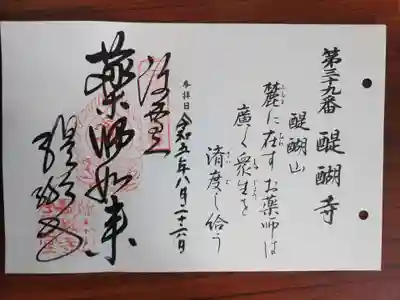 第三十九番 醍醐寺
醍醐山
麓に在すお薬師は
廣く衆生を
済度し給う
参拝日 令和五年八月二十六日
深雪山
薬師如来
醍醐寺